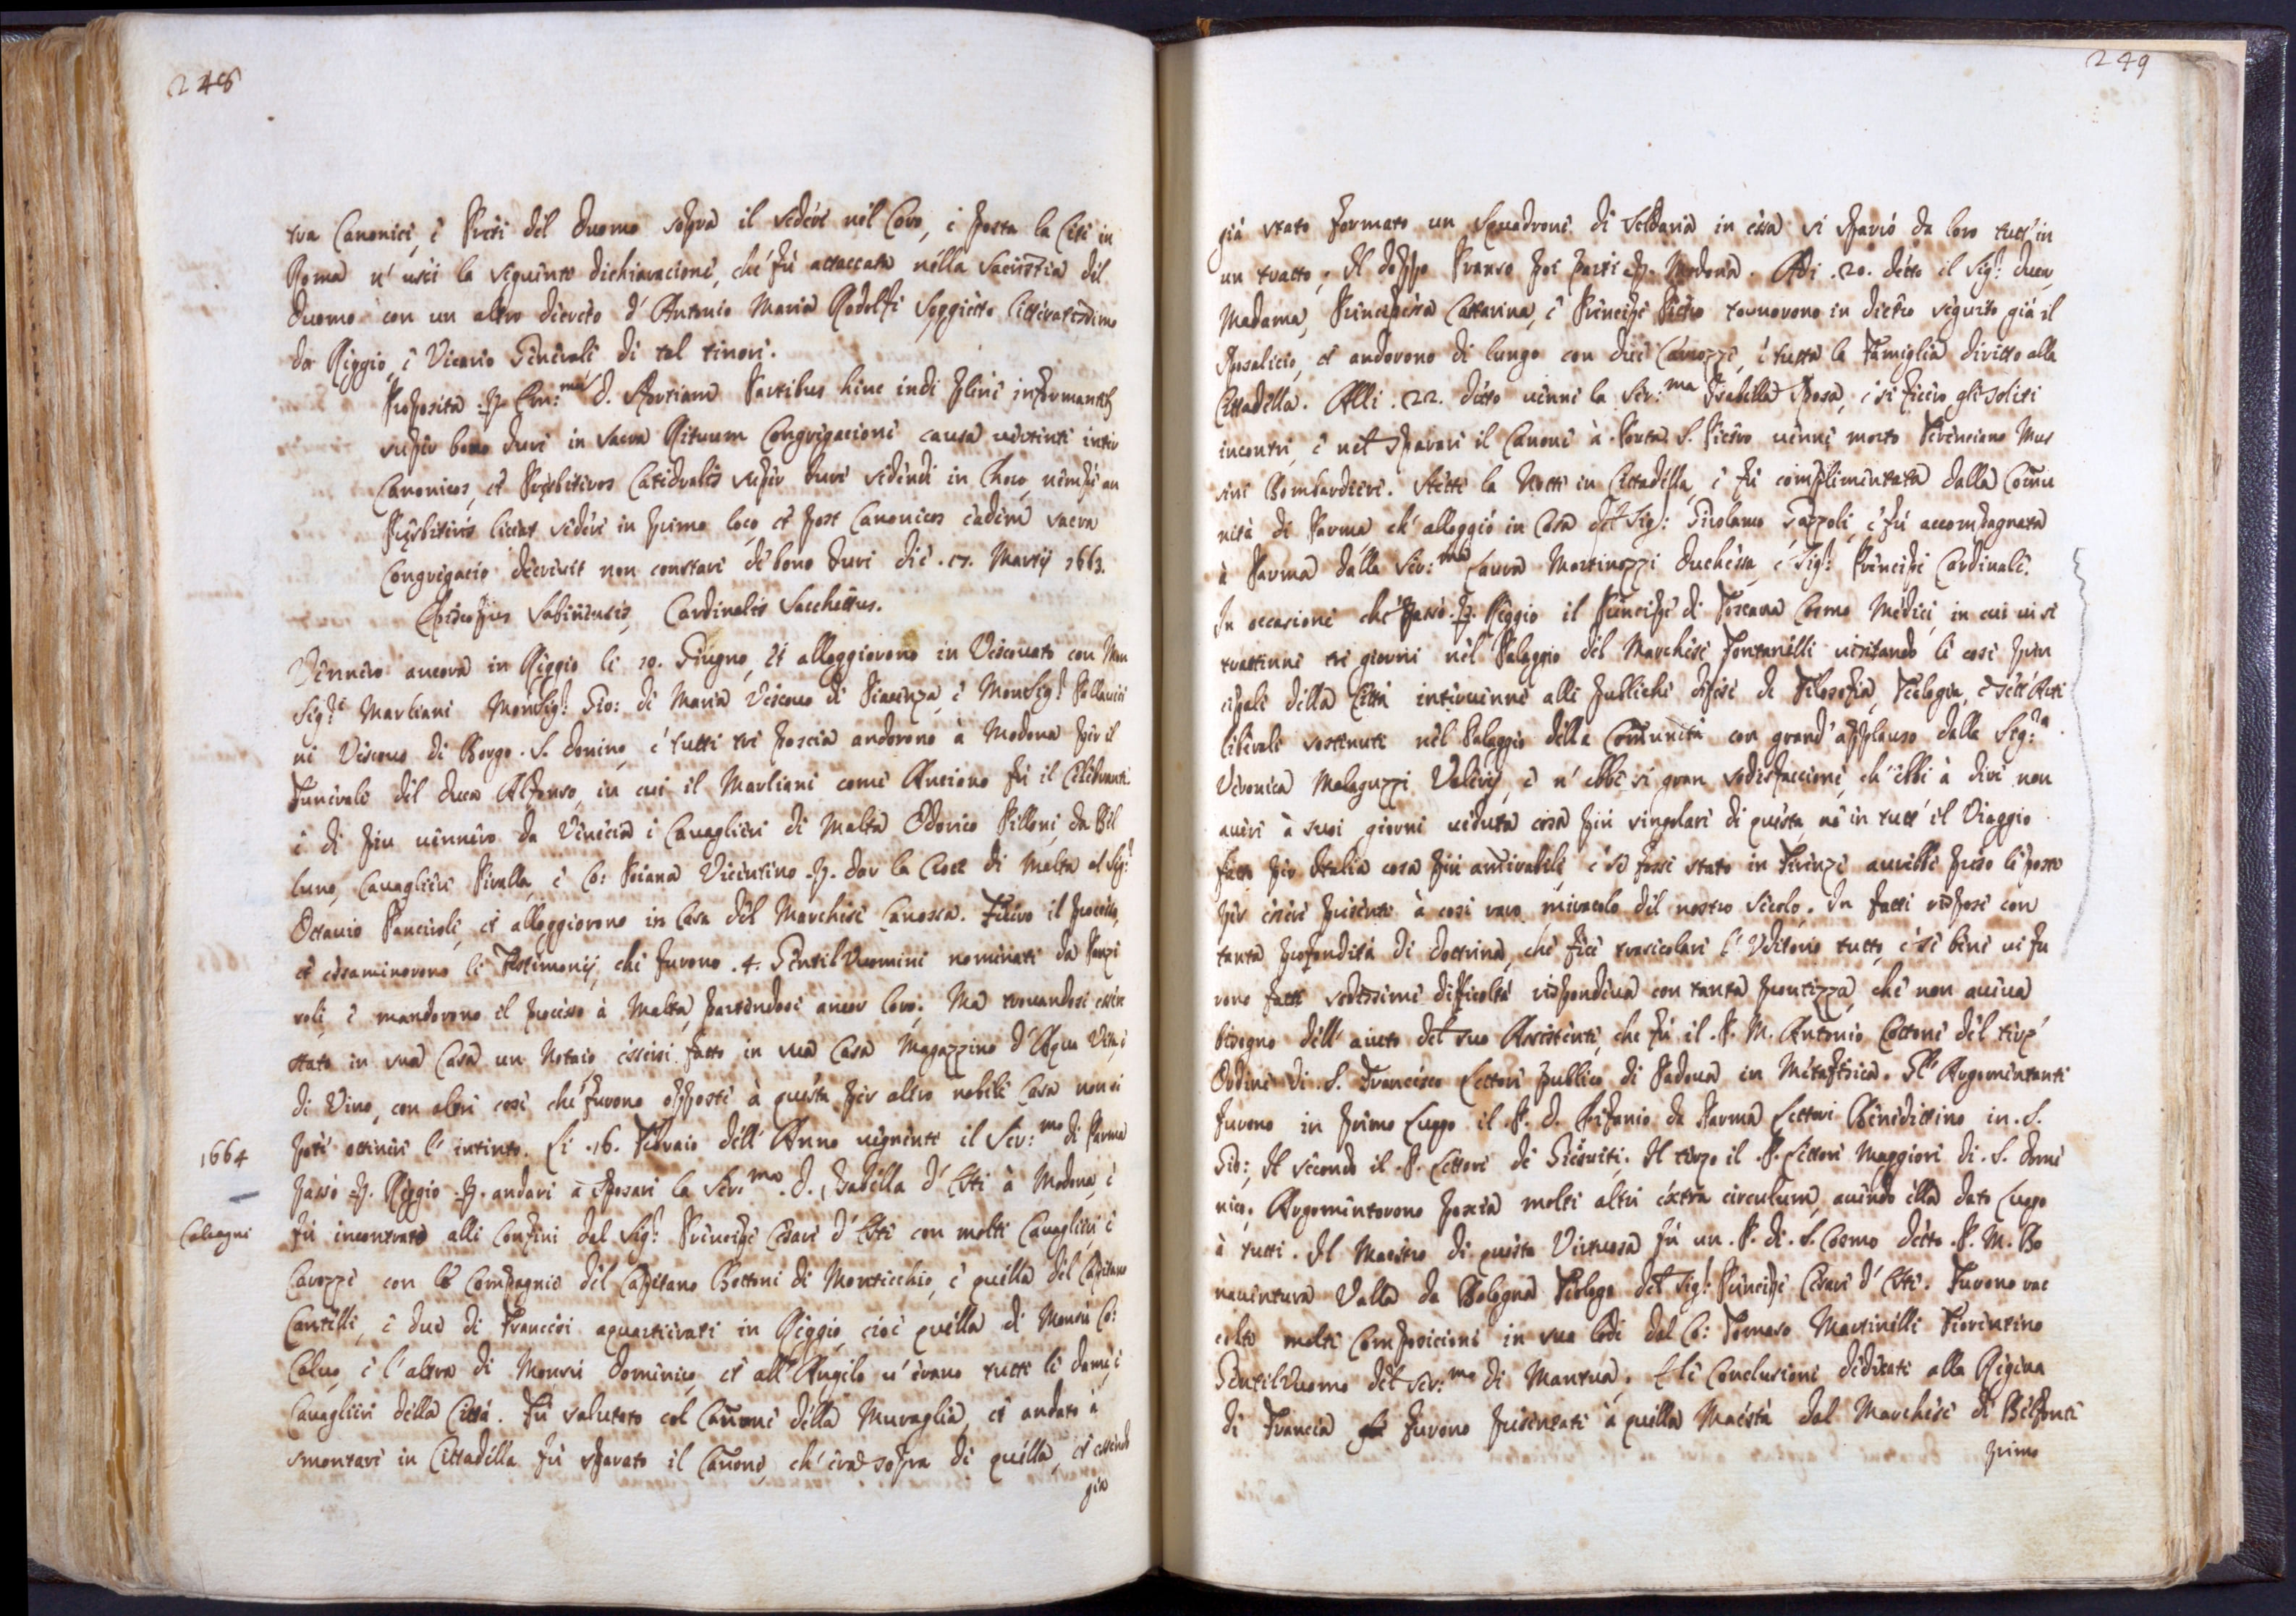 248
tra Canonici, è Preti del Duomo sopra il sedere nel Coro, è posta la Lite in
Roma n' uscì la seguente dichiaracione, che fù attaccata nella Sacristia del
Duomo con un altro decreto d' Antonio Maria Rodolfi Soggietto litteratissimo
da Reggio, è Vicario Generale di tal tenore.
Proposita per Em:mũ D. Sfortiam Partibus hinc inde plene informantib
super bono Iure in Sacra Rituum Congregacione causa vertente inter
Canonicos, et Presbiteros Catedralis super Iure sedendi in Choro, nempè an
Presbiteris liceat sedere in primo loco et post Canonicos eadem sacra
Congregacio decrevit non constare de bono Iure die .17. Martij 1663.
Episcopus Sabinensis, Cardinalis Sacchettus.
Vennero ancora in Reggio li 10. Giugno, et alloggiorono in Vescouato con Mon
Sig.re Marliani Monsig.r Gio: di Maria Vescouo di Piacenza, è Monsig.r Pallauici
ni Vescouo di Borgo .S. Donino, è tutti tre poscia andorono à Modona per il
Funerale del Duca Alfonso, in cui il Marliani come Anciano fù il Celebrante.
è di piu uennero da Venecia i Cauaglieri di Malta Odorico Pilloni da Bel
luno, Cauaglieri Piualla, è Co: Poiana Vicentino .p. dar la Croce di Malta al Sig.r
Octauio Panciroli, et alloggiorono in Casa del Marchese Canossa. Fecero il processo,
et essaminorono li Testimonij, che furono .4. Gentil'Uuomini nominati da Panzi
roli, è mandorono il processo à Malta, partendosi ancor loro. Ma trouandosi esser
stato in sua Casa un Notaio, essersi fatto in sua Casa Magazzino d' Aqua Vite, è
di Vino, con altre cose che furono opposte à questa per altro nobile Casa non si
1664 potè ottener l' intento. Li .16. Febraio dell' Anno uegnente il Ser:mo di Parma
passò .p. Reggio .p. andare à sposare la Ser:ma .D. Isabella d' Este à Modona, è
Calcagni fù incontrato alli Confini dal Sig.r Principe Cesare d' Este con molti Cauaglieri è
Carozze con le Compagnie del Capitano Bottoni di Montecchio, è quella del Capitano
Cantelli, è due di Francesi aquartierati in Reggio, cioè quella di Monsù Co:
Caluo, è l' altra di Monsù Dominico, et all' Angelo u' erano tutti le dame, è
Cauaglieri della Città. Fù salutato col Canone della Muraglia, et andato à
smontare in Cittadella fù sparato il Canone, ch' era sopra di quella, et essendo
gia
249
già stato formato un Squadrone di Soldaria in essa si sparió da loro tutt' in
un tratto. Il doppo Pranso poi partì .p. Modona. Adi .20. detto il Sig.r Duca,
Madama, Principessa Cattarina, è Principe Pietro tornorono in dietro seguito già il
Sposalicio, et andorono di lungo con dieci Carozze, è tutta la Famiglia diritto alla
Cittadella. Alli .22. ditto uenne la Ser:ma Isabella Sposa, è si fecero gli soliti
incontri, è nel sparare il Canone à Porta S. Pietro uenne morto Terenciano Mus
sini Bombardiere. Stette la Notte in Cittadella, è fù complimentata dalla Comu
nità di Parma ch' alloggió in Casa del Sig.r Girolamo Zoppoli, è fù accompagnata
à Parma dalla Ser:ma Laura Martinozzi Duchessa, è Sig.r Principe Cardinale.
In occasione che passò .p. Reggio il Principe di Toscana Cosmo Medici, in cui ui si
trattenne tre giorni nel Palaggio del Marchese Fontanelli uisitando le cose prin
cipali della Città interuenne alle publiche difese de Filosofia, Teologia, è sett' Arti
liberali sostenute nel Palaggio della Comunità con grand' applauso dalla Sig.ra
Veronica Malaguzzi Valerij, è n' ebbe si gran sodisfaccione, ch' ebbe à dire non
auere à suoi giorni ueduta cosa più singolare di questa, nè in tutt' il Viaggio
fatto per Italia cosa più amirabile, è se fosse stato in Firenze aurebbe preso le poste
per essere presente à così raro miracolo del nostro secolo. In fatti rispose con
tanta profondità di dottrina, che fece trasecolare l' Uditorio tutto, è se bene ui fu
rono fatte sodissime difficoltà rispondeua con tanta prontezza, che non aueua
bisogno dell' aiuto del suo Assistente, che fù il .P. M. Antonio Cottoni del terz'
Ordine di .S. Francesco Lettore publico di Padoua in Metafisica. Gl' Argomentanti
furono in primo luogo il .P. D. Epifanio da Parma Lettore Benedittino in .S.
Gio: Il secondo il .P. Lettore de Giesuiti. Il terzo il .P. Lettore Maggiore di .S. Domi
nico. Argomentorono poscia molti altri extra circulum, auendo ella dato luogo
à tutti. Il Maestro di questa Virtuosa fù un .P. di .S. Cosmo detto .P. M. Bo
nauentura Valla da Bologna Teologo del Sig.r Principe Cesare d' Este. Furono rac
colte molte Composicioni in sua lode dal Co: Tomaso Martinelli Fiorentino
Gentilhuomo del Ser:mo di Mantua. E le Conclusioni dedicate alla Regina
di Francia furono presentate à quella Maestà dal Marchese di Belfonte
primo